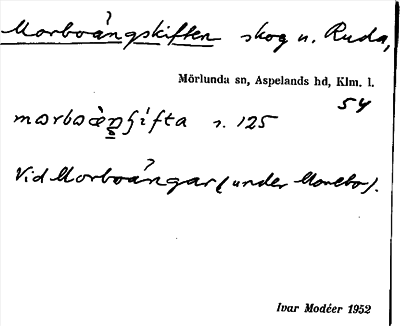 Morboångskiften skog u. Ruda,
Mörlunda sn, Aspelands hd, Klm. l.
54
s. 125
Vid Morboångar (under Morebo).
Ivar Modéer 1952